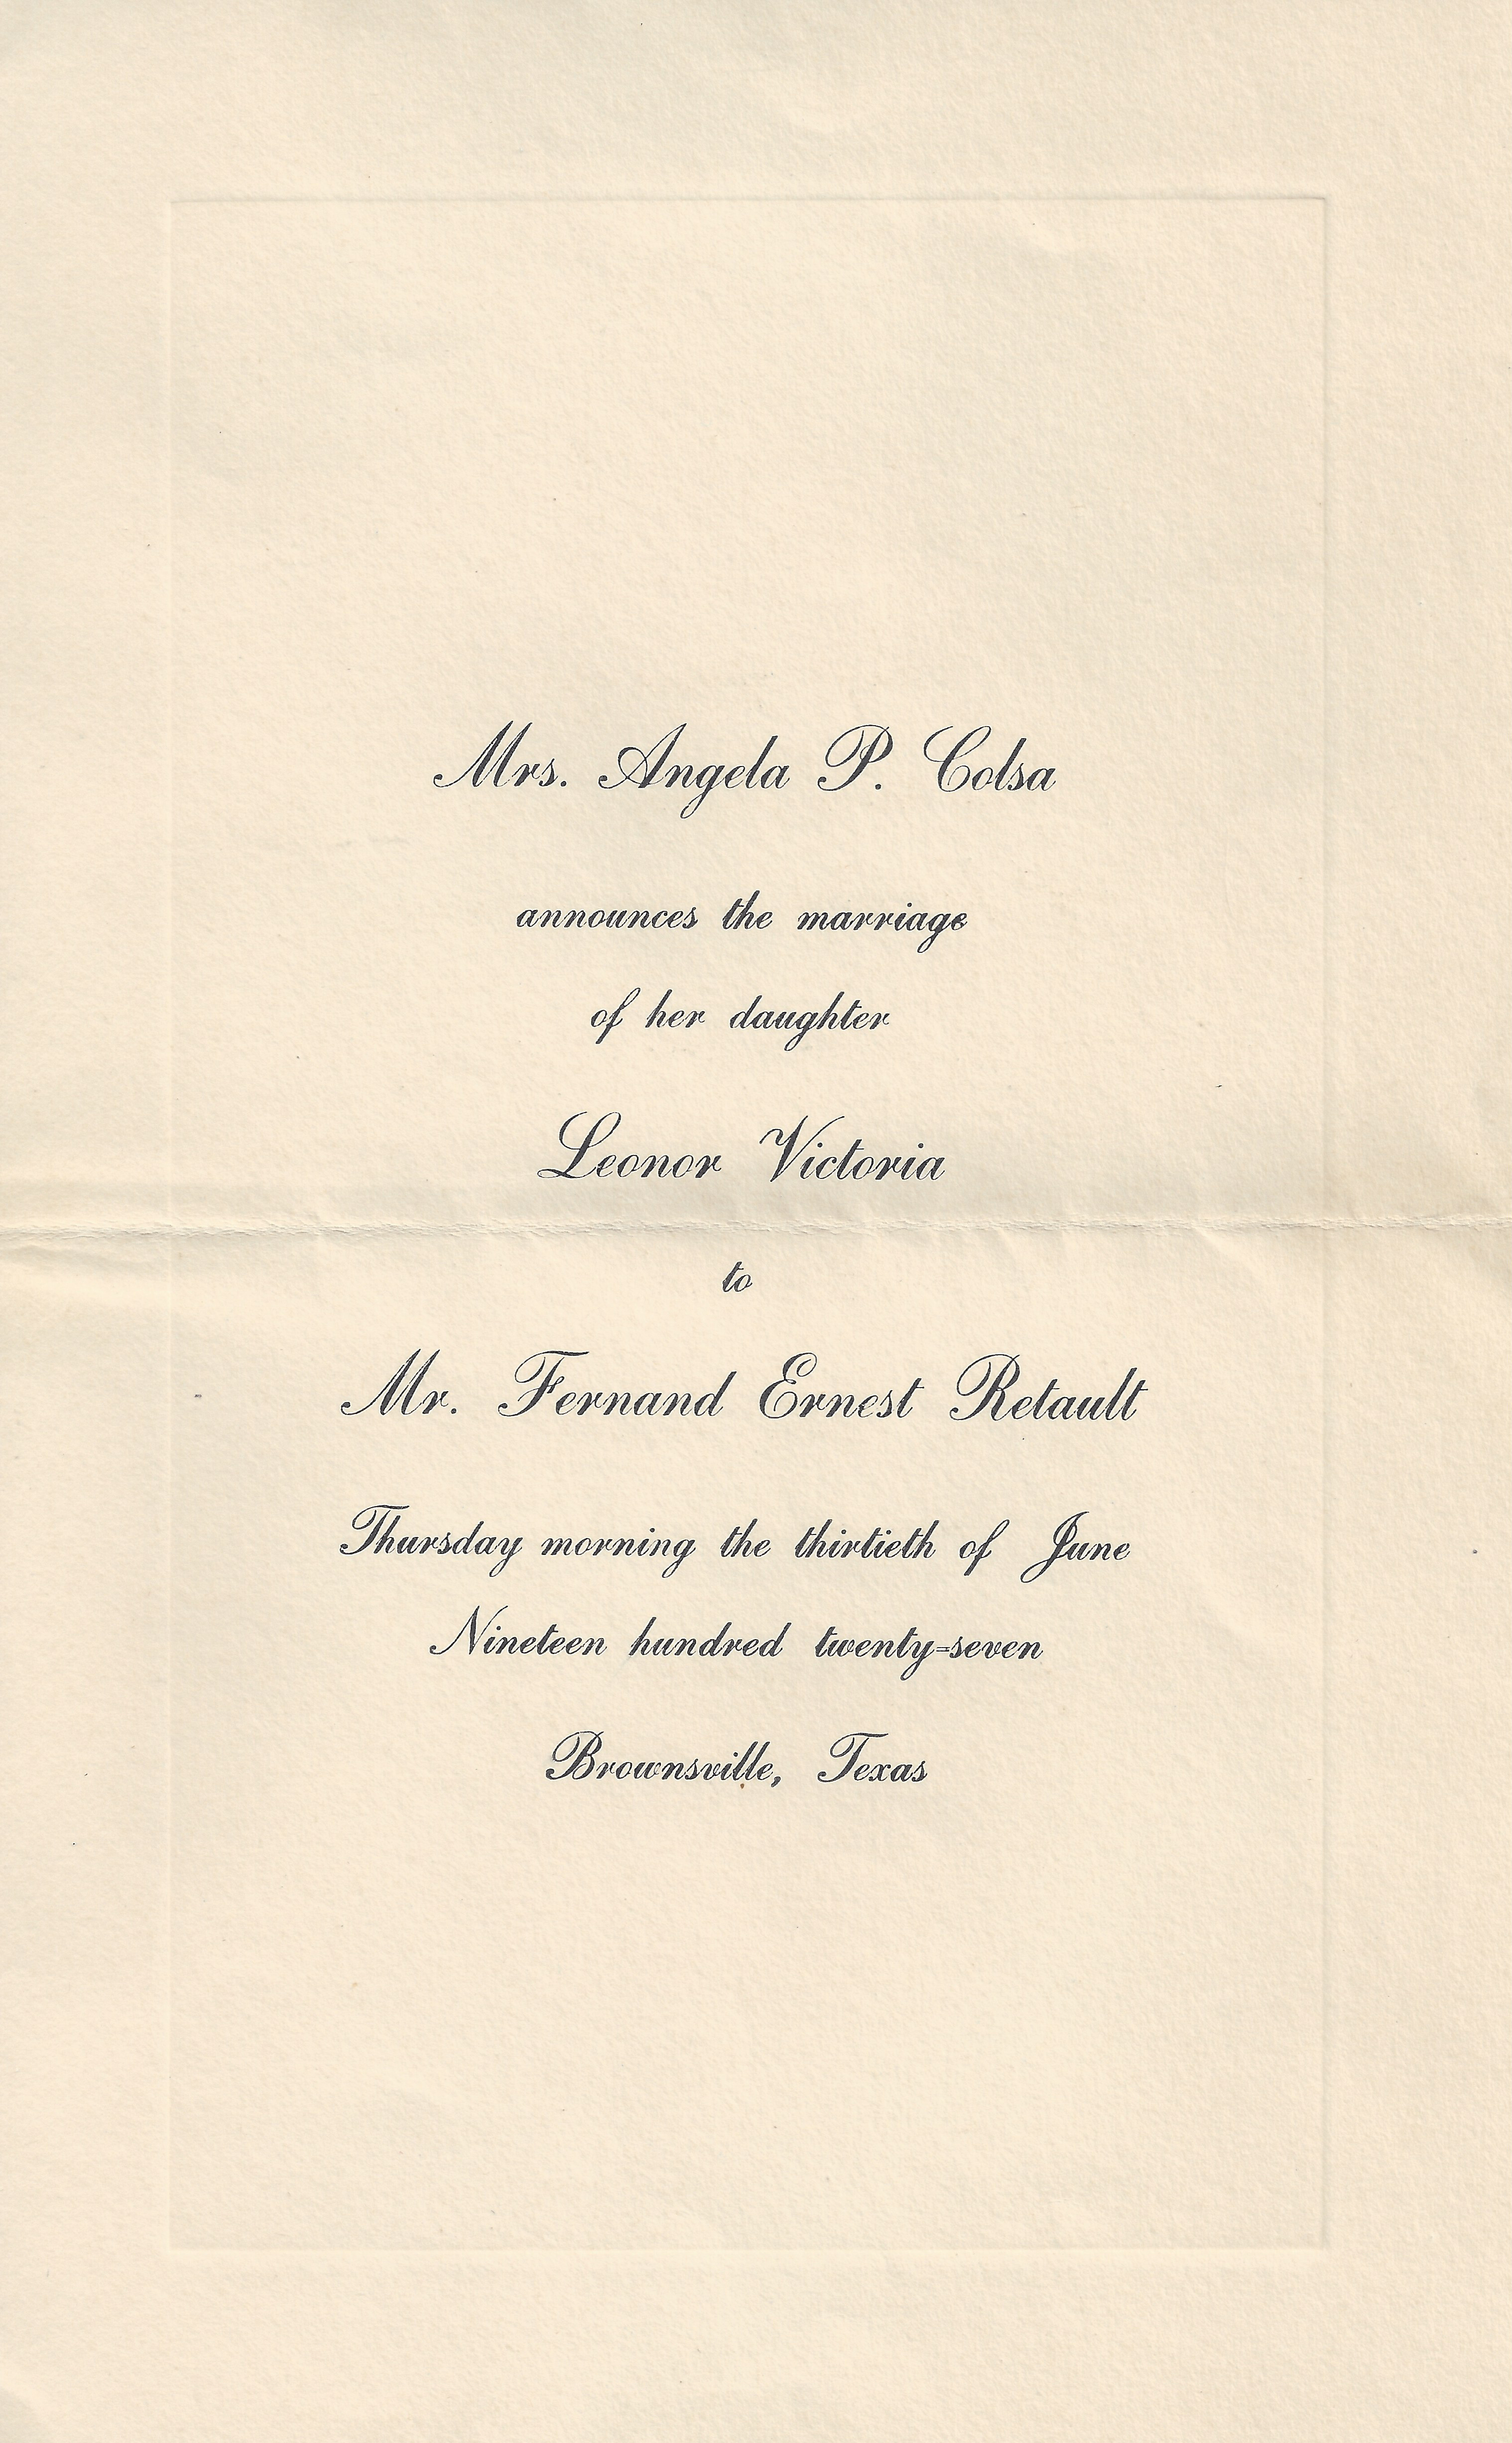 Mrs. Angela P. Colsa
announces the marriage
of her daughter
Leonor Victoria
to
Mr. Fernand Ernest Retault
Thursday morning the thirtieth of June
Nineteen hundred twenty=seven
Brownsville, Texas